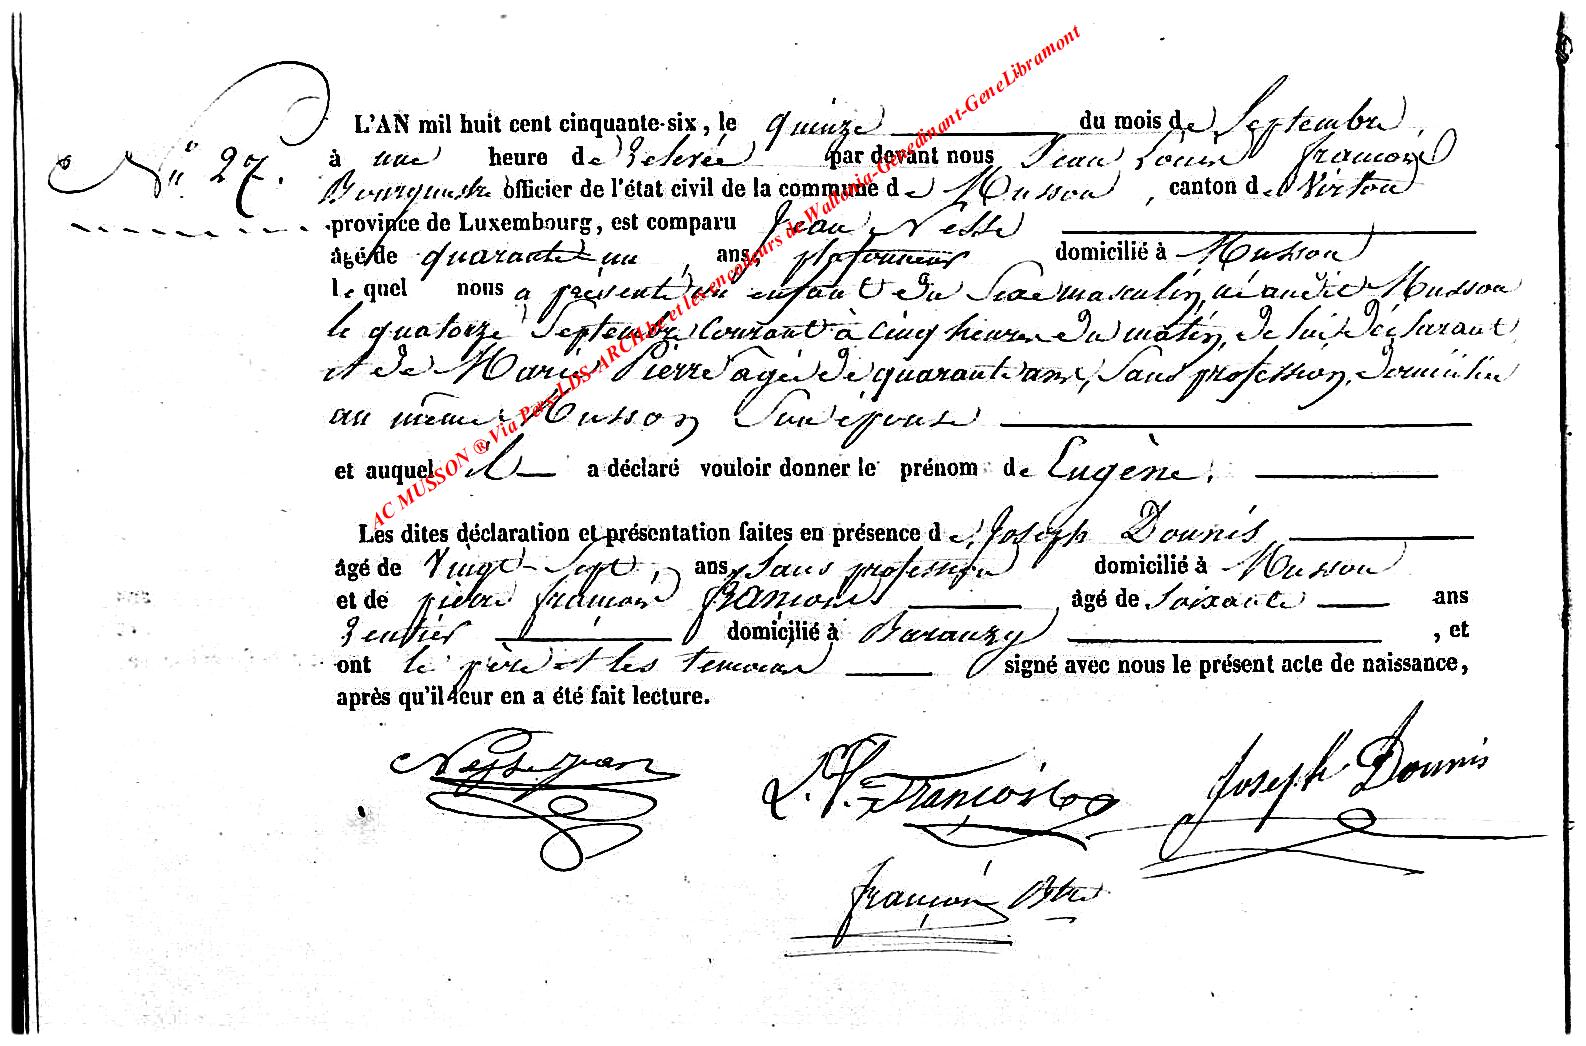 L'AN mil huit cent cinquante-six, le quinze du mois de Septembre,
N° 27. à une heure de relevée par devant nous Jean Louis François
Bourgmestre officier de l'état civil de la commune de Musson, canton de Virton
province de Luxembourg, est comparu Jean Nesse
âgé de quarante-un, ans, plafonneur domicilié à Musson
lequel nous a présenté un enfant du Sexe masculin, né audit Musson
le quatorze Septembre Courant à cinq heures du matin, de lui déclarant
et de Marie Pierre agée de quarante ans, Sans profession, domiciliée
au même Musson Son épouse
et auquel il a déclaré vouloir donner le prénom de Eugène.
Les dites déclaration et présentation faites en présence de Joseph Dounis
âgé de Vingt-Sept, ans, Sans profession domicilié à Musson
et de pierre françois françois âgé de Soixante ans
rentier domicilié à Baranzy, et
ont le père et les temoins signé avec nous le présent acte de naissance,
après qu'il leur en a été fait lecture.
Nesse jean François Joseph Dounis
françois Btre
AC MUSSON ® Via Pxrx-LDS-ARCH.be et les encodeurs de Wallonia-Genedinant-GeneLibramont